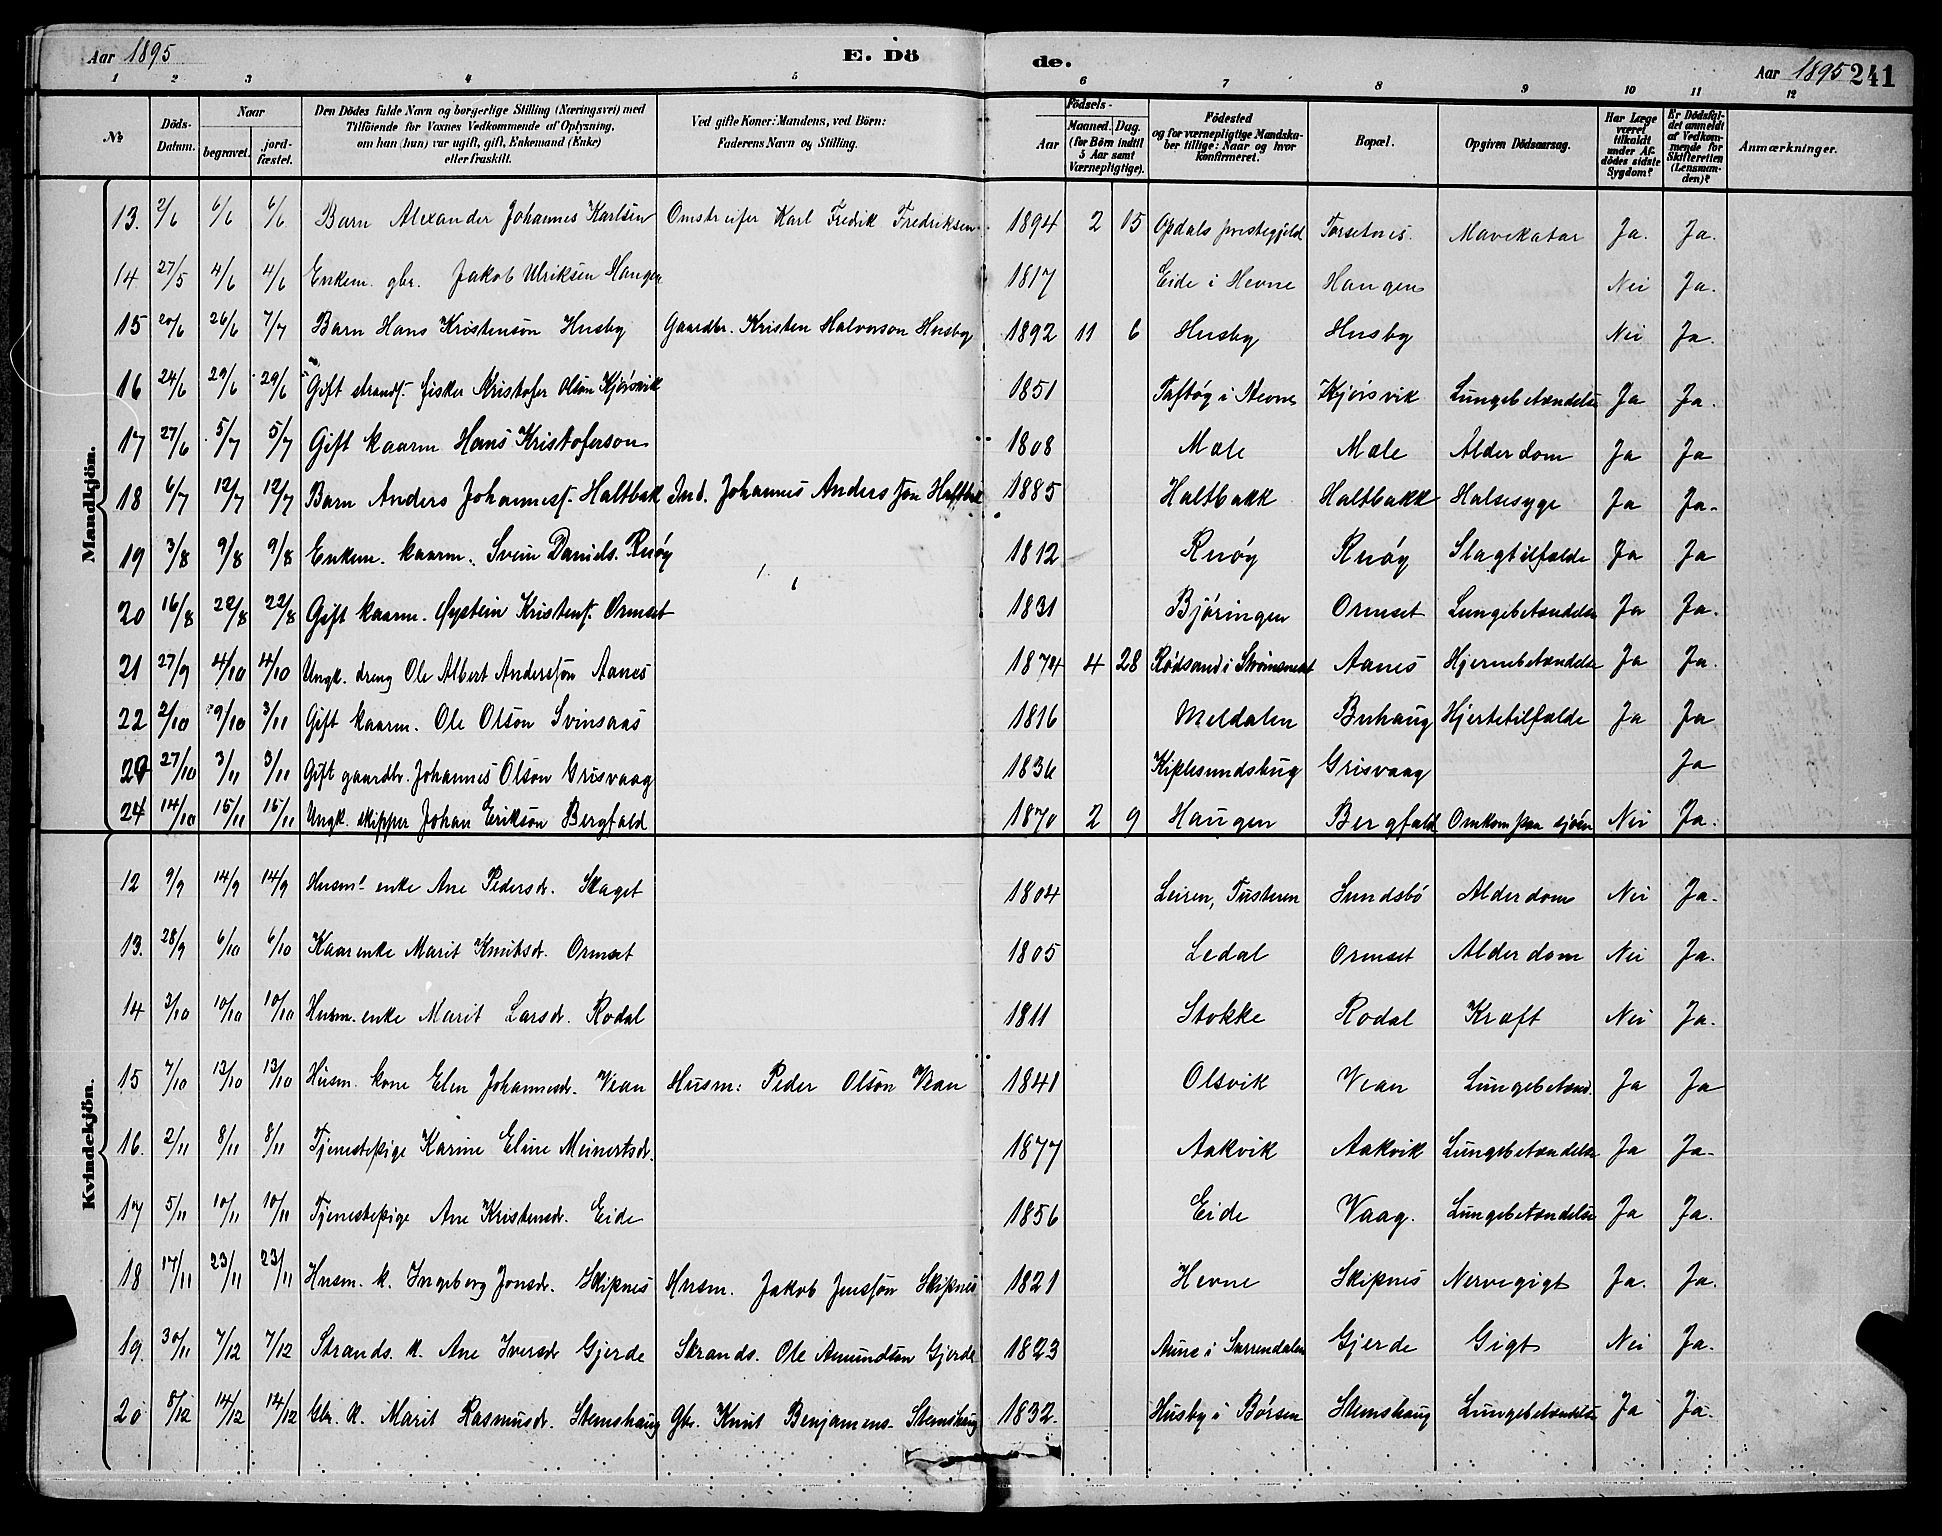 Aar 1895 E. Dö de. Aar 1895 241
1 2 3 4 5 6 7 8 9 10 11 12
No Döds-Datum. Naar begravet. jord-fæstet. Den Dödes fulde Navn og borgerlige Stilling (Næringsvei) med Tilföiende for Voxnes Vedkommende af Oplysning, om han (hun) var ugift, gift, Enkemand (Enke) eller fraskilt. Ved gifte Koner: Mandens, ved Börn: Faderens Navn og Stilling. Födsels- Aar Maaned. Dag. (for Börn indtil 5 Aar samt Værnepligtige). Födested og for værnepligtige Mandska-ber tillige: Naar og hvor konfirmeret. Bopæl. Opgiven Dödsaarsag. Har Læge været tilkaldt under Af-dödes sidste Sygdom? Er Dödsfal-det anmeldt af Vedkom-mende for Skifteretten (Lensman-den)? Anmærkninger.
Mandkjön.
13. 2/6 6/6 6/6 Barn Alexander Johannes Karlsen Omstreifer Karl Fredrik Fredriksen 1894 2 15 Opdals prestegjeld Torsetnes. Mavekatar Ja. Ja.
14 27/5 4/6 4/6 Enkem. gbr. Jakob Ulriksen Haugen 1817 Eide i Hevne Haugen Nei Ja.
15 20/6 26/6 7/7 Barn Hans Kristenson Husby Gaardbr. Kristen Halvorson Husby 1892 11 6 Husby Husby Nei Ja.
16 24/6 29/6 29/6 Gift strands. fisker Kristofer Olson Kjørsvik 1851 Taftøy i Hevne Kjørsvik Lungebetændelse Ja Ja.
17 27/6 5/7 5/7 Gift kaarm Hans Kristoferson 1808 Mæle Mæle Alderdom Ja Ja
18 6/7 12/7 12/7 Barn Anders Johannesf. Haltbak Ind. Johannes Andersson Haltbak 1885 Haltbakk Haltbakk Halsesyge Ja Ja.
19 3/8 9/8 9/8 Enkem. kaarm. Svein Daniels. Ruøy 1812 Ruøy Ruøy Slagtilfælde Ja Ja
20 16/8 22/8 22/8 Gift kaarm. Øystein Kristensf. Ormset 1831 Bjøringen Ormset Lungebetændelse Ja Ja.
21 27/9 4/10 4/10 Ungk. dreng Ole Albert Andersson Aanes 1874 4 28 Rødsand i Strømsneset Aanes Hjernebetændelse Ja Ja.
22 2/10 9/10 3/11 Gift kaarm. Ole Olson Svinsaas 1816 Meldalen Buhaug Hjertetilfælde Ja Ja
27/10 3/11 3/11 Gift gaardbr. Johannes Olson Grisvaag 1836 Kiplesundsbug Grisvaag Ja
24 14/10 15/11 15/11 Ungk. skipper Johan Erikson Bergfald 1870 2 9 Haugen Bergfald Omkom paa sjøen Nei Ja.
Kvindekjön.
12 9/9 14/9 14/9 Husm. enke Ane Pedersdr. Skaget 1804 Leiren, Tusteren Sundsbö Alderdom Nei Ja.
13. 28/9 6/10 6/10 Kaarenke Marit Knutsdr. Ormset 1805 Ledal Ormset Alderdom Nei Ja.
14 3/10 10/10 10/10 Husm. enke Marit Larsdr. Rodal 1811 Stokke Rodal Kræft Nei Ja.
15 7/10 13/10 13/10 Husm. kone Elen Johannesdr. Vean Husm: Peder Olson Vean 1841 Olsvik Vean Lungebetænd. Ja Ja
16. 2/11 8/11 8/11 Tjenestepige Karine Eline Meinertsdr. 1877 Aakvik Aakvik Lungebetændelse Ja Ja.
17 5/11 10/11 10/11 Tjenestepige Ane Kristensdr. Eide 1856 Eide Vaag. Lungebetændelse Ja Ja.
18 17/11 23/11 23/11 Husm. k. Ingeberg Jonsdr. Skipnes Husm. Jakob Jensson Skipnes 1821 Hevne Skipnes Nervegigt Ja. Ja.
19. 30/11 7/12 7/12 Strands. k. Ane Iversdr Gjerde Strands. Ole Amundsen Gjerde 1823 Aune i Surendalen Gjerde Gigt Nei Ja.
20 8/12 14/12 14/12 Gbr. k. Marit Rasmusdr. Stemshaug Gbr. Knut Benjamens. Stemshaug 1832. Husby i Børsen Stemshaug Lungebetændelse Ja Ja.